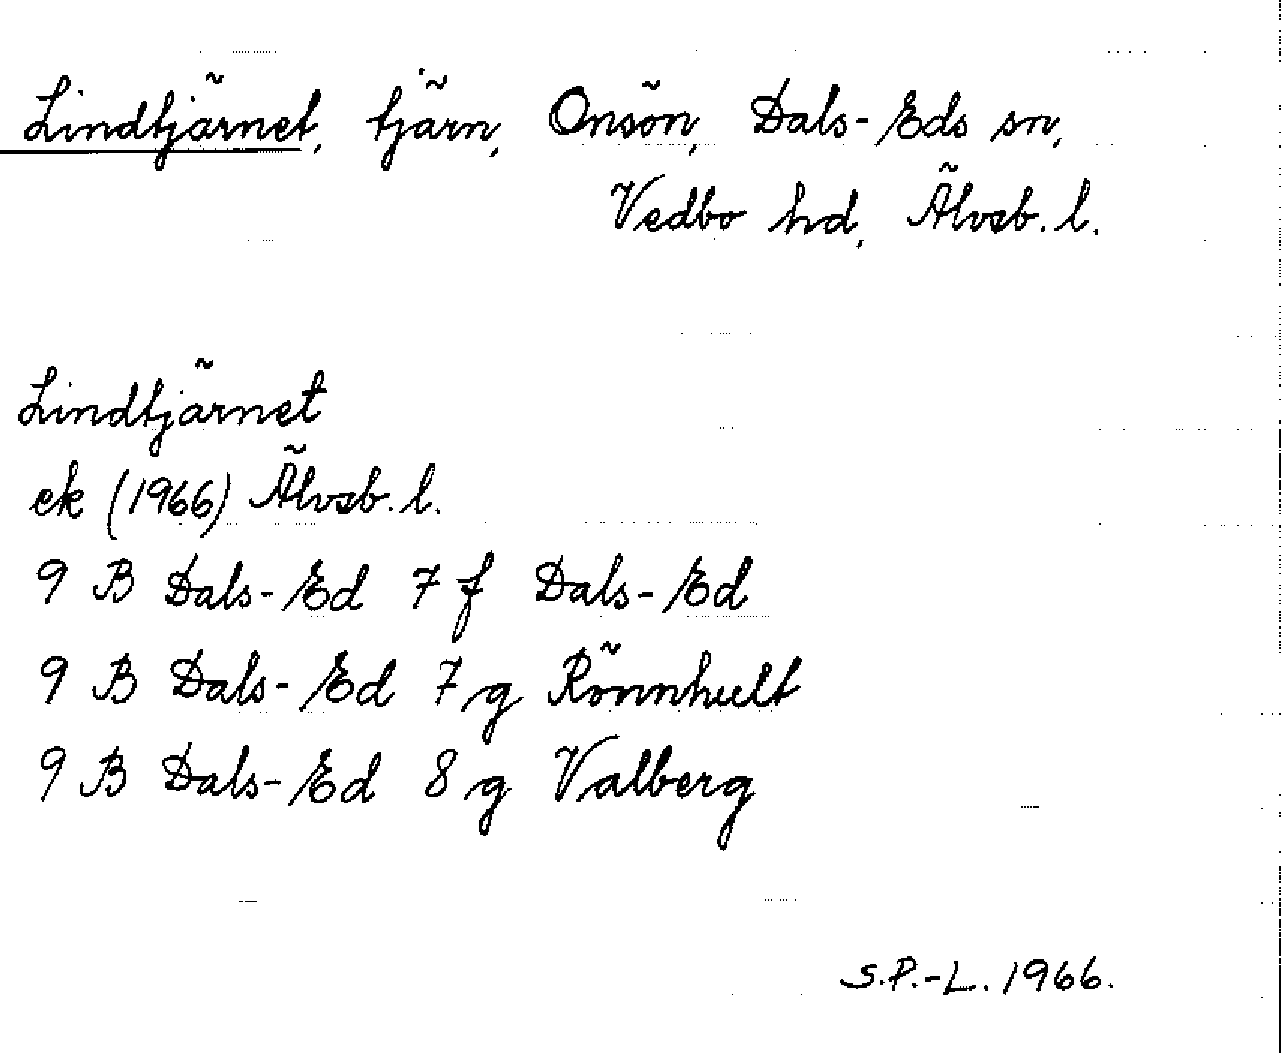 Lindtjärnet, tjärn, Onsön, Dals-Eds sn,
Vedbo hd, Älvsb. l.
Lindtjärnet
ek (1966) Älvsb. l.
9 B Dals-Ed 7 f Dals-Ed
9 B Dals-Ed 7 g Rönnhult
9 B Dals-Ed 8 g Valberg
S.P.-L. 1966.